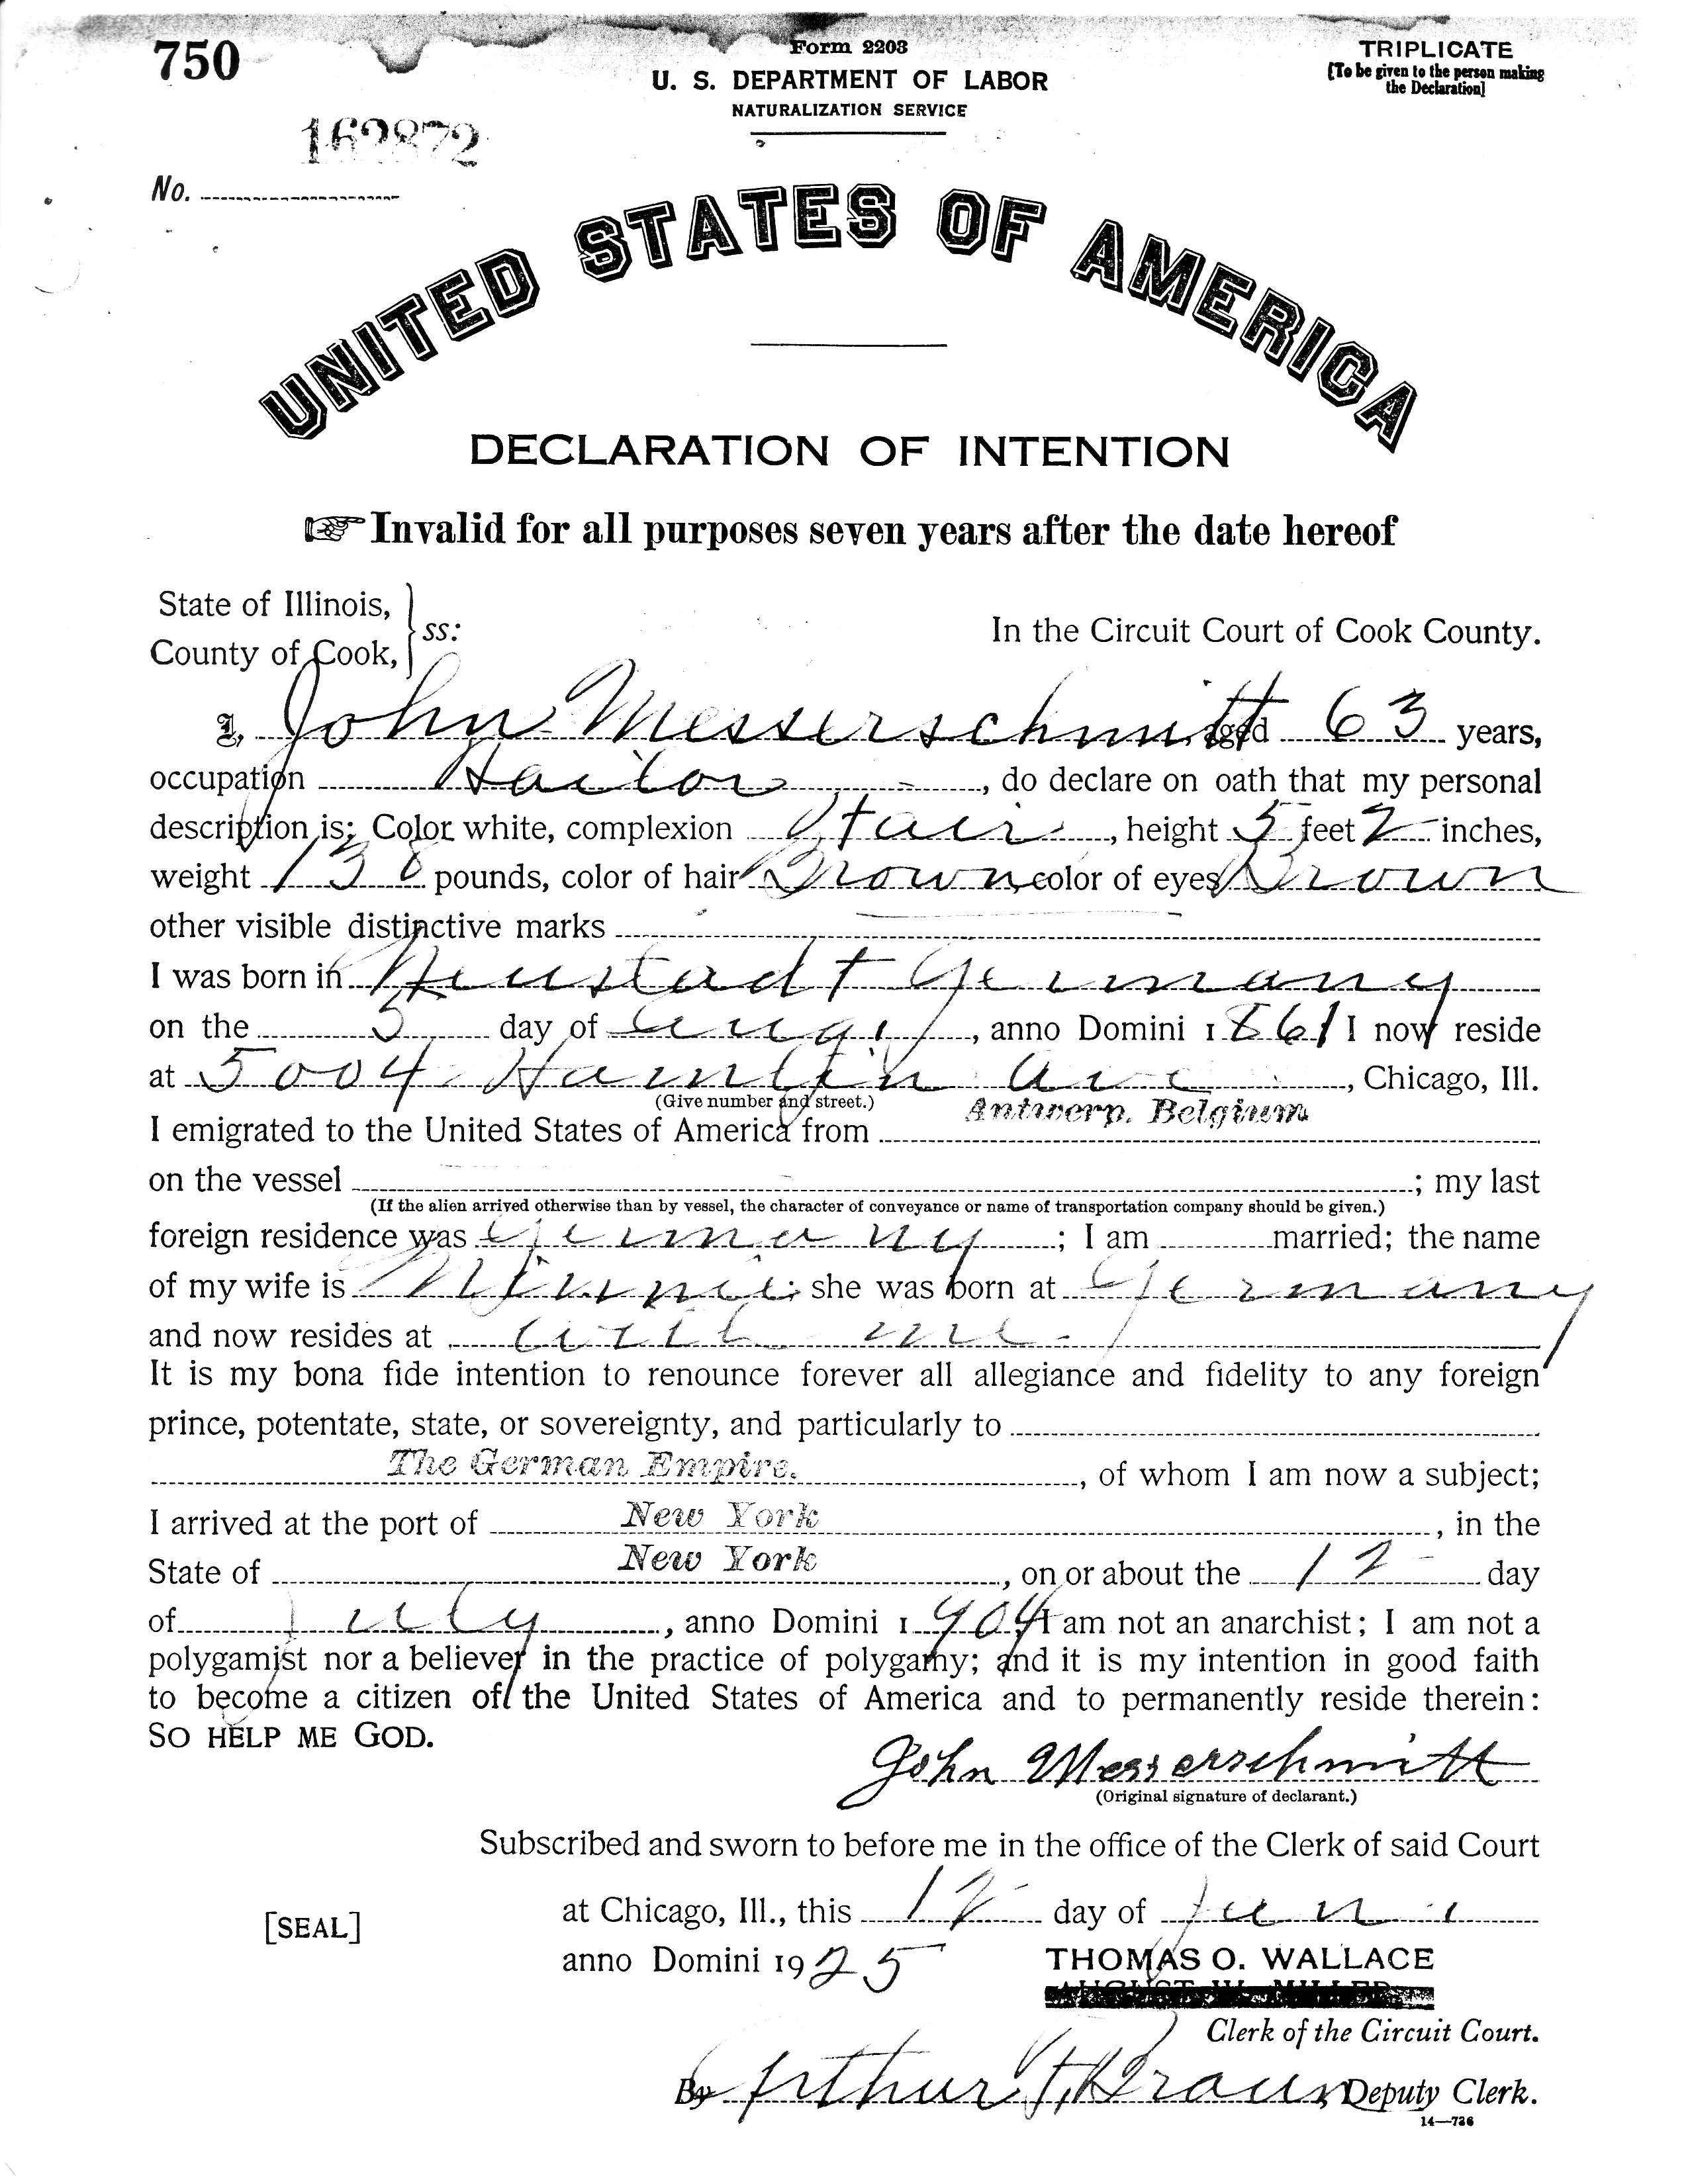 750
Form 2203
TRIPLICATE
U. S. DEPARTMENT OF LABOR
[To be given to the person making
the Declaration]
NATURALIZATION SERVICE
162872
No.
UNITED STATES OF AMERICA
DECLARATION OF INTENTION
☞ Invalid for all purposes seven years after the date hereof
State of Illinois,
County of Cook,
ss:
In the Circuit Court of Cook County.
I, John Messerschmitt, aged 63 years,
occupation Tailor, do declare on oath that my personal
description is: Color white, complexion Fair, height 5 feet 2 inches,
weight 138 pounds, color of hair Brown, color of eyes Brown
other visible distinctive marks
I was born in Neustadt Germany
on the 5 day of Aug, anno Domini 1861 I now reside
at 5004 Hamlin Ave, Chicago, Ill.
(Give number and street.)
I emigrated to the United States of America from Antwerp, Belgium
on the vessel ; my last
(If the alien arrived otherwise than by vessel, the character of conveyance or name of transportation company should be given.)
foreign residence was Germany; I am married; the name
of my wife is Minnie; she was born at Germany
and now resides at with me.
It is my bona fide intention to renounce forever all allegiance and fidelity to any foreign
prince, potentate, state, or sovereignty, and particularly to
The German Empire, of whom I am now a subject;
I arrived at the port of New York, in the
State of New York, on or about the 12 day
of July, anno Domini 1904 I am not an anarchist; I am not a
polygamist nor a believer in the practice of polygamy; and it is my intention in good faith
to become a citizen of the United States of America and to permanently reside therein:
SO HELP ME GOD.
John Messerschmitt
(Original signature of declarant.)
Subscribed and sworn to before me in the office of the Clerk of said Court
[SEAL]
at Chicago, Ill., this 12 day of June
anno Domini 1925
THOMAS O. WALLACE
AUGUST W. MILLER
Clerk of the Circuit Court.
By Arthur Braun Deputy Clerk.
14—736